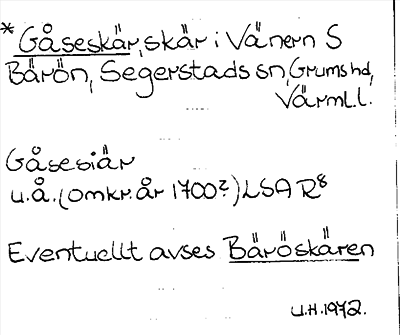 *Gåseskär, skär i Vänern S
Bärön, Segerstads sn, Grums hd,
Värml.l.
Gåsesiär
u.å. (omkr. år 1700?) LSA R8
Eventuellt avses Bäröskären
U.H. 1972.